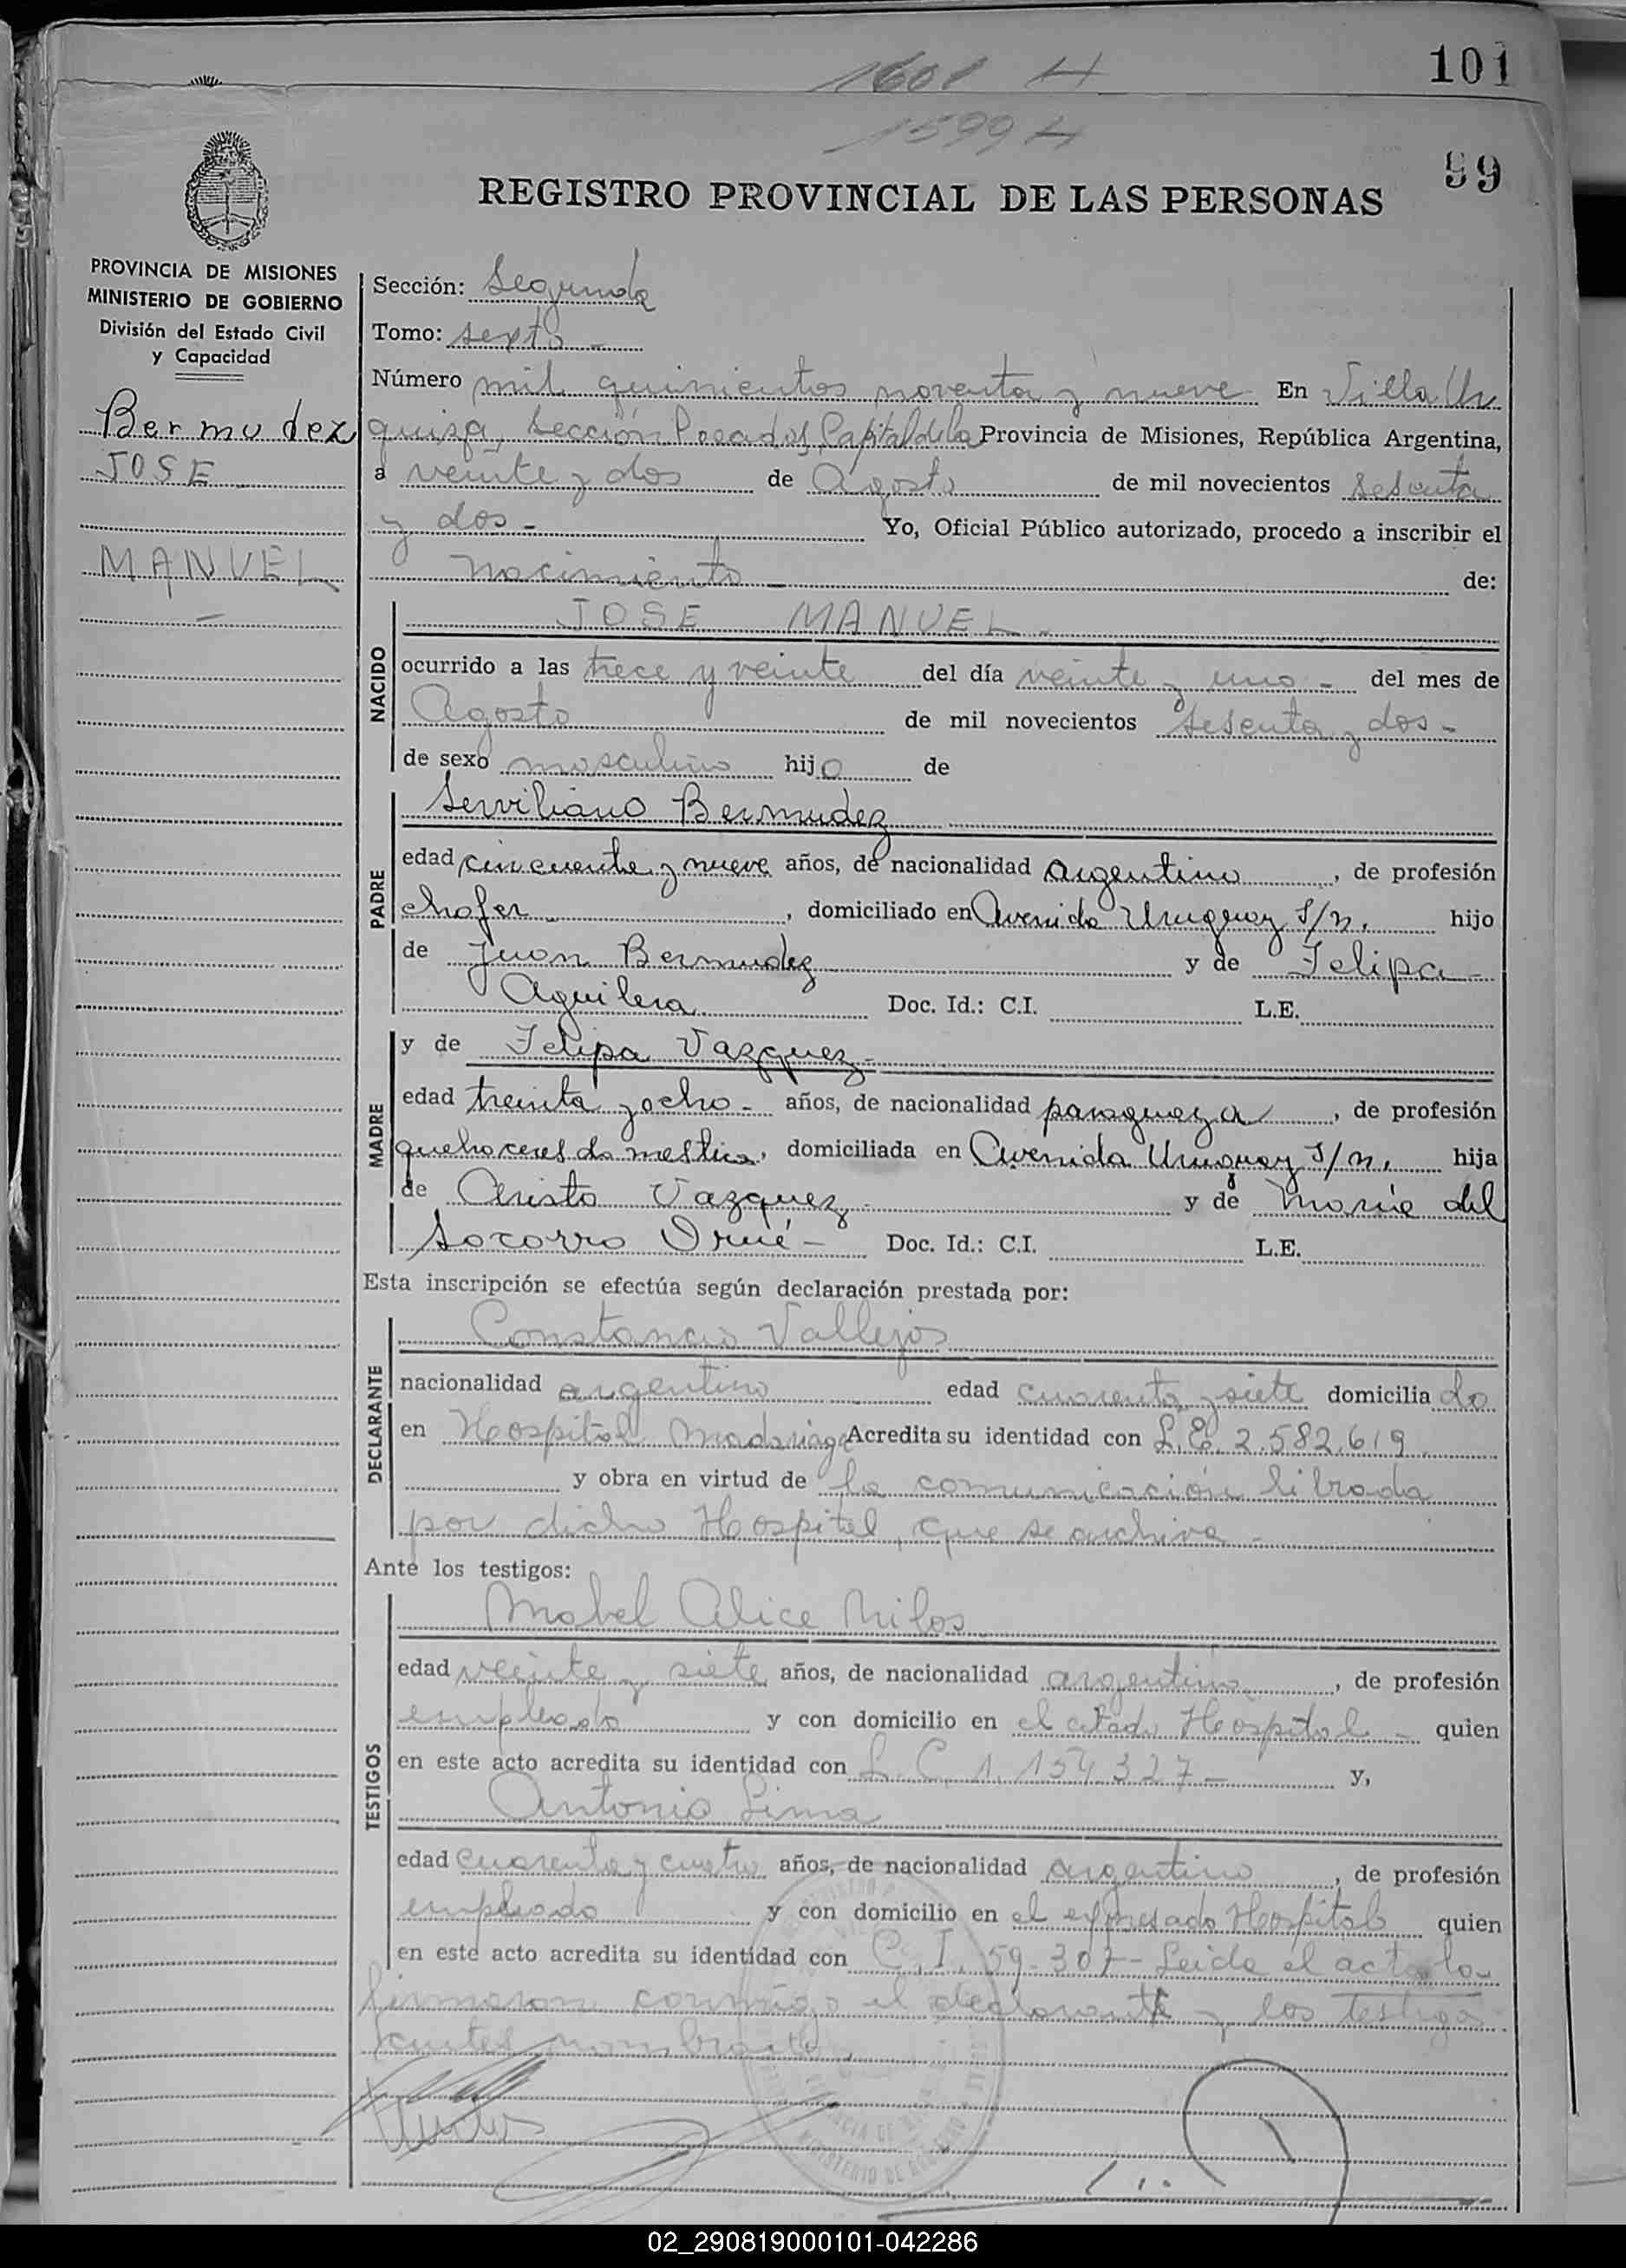 1601 H
101
1599 H
99
REGISTRO PROVINCIAL DE LAS PERSONAS
PROVINCIA DE MISIONES
MINISTERIO DE GOBIERNO
División del Estado Civil
y Capacidad
Bermudez
JOSE
MANUEL
Sección: Segunda
Tomo: sexto -
Número mil quinientos noventa y nueve En Villa Ur
quiza, Sección Posadas, Capital de la Provincia de Misiones, República Argentina,
a veinte y dos de Agosto de mil novecientos sesenta
y dos - Yo, Oficial Público autorizado, procedo a inscribir el
nacimiento - de:
NACIDO
JOSE MANUEL -
ocurrido a las trece y veinte del día veinte y uno - del mes de
Agosto de mil novecientos sesenta y dos -
de sexo masculino hijo de
PADRE
Serviliano Bermudez
edad cincuenta y nueve años, de nacionalidad argentino, de profesión
chofer -, domiciliado en Avenida Uruguay S/n. hijo
de Juan Bermudez y de Felipa
Aguilera Doc. Id.: C.I. L.E.
MADRE
y de Felipa Vazquez -
edad treinta y ocho - años, de nacionalidad paraguaya, de profesión
quehaceres domestica, domiciliada en Avenida Uruguay S/n, hija
de Aristo Vazquez y de María del
Socorro Orué - Doc. Id.: C.I. L.E.
Esta inscripción se efectúa según declaración prestada por:
DECLARANTE
Constancio Vallejos
nacionalidad argentino edad cuarenta y siete domiciliado
en Hospital Madariaga Acredita su identidad con L.E. 2.582.619
y obra en virtud de la comunicación librada
por dicho Hospital, que se archiva -
Ante los testigos:
TESTIGOS
Mabel Alice Milos
edad veinte y siete años, de nacionalidad argentina, de profesión
empleada y con domicilio en el citado Hospital - quien
en este acto acredita su identidad con L. C. 1.154.327 - y,
Antonio Lima
edad cuarenta y cuatro años, de nacionalidad argentino, de profesión
empleado y con domicilio en el expresado Hospital quien
en este acto acredita su identidad con C. I. 59.307 - Leida el acta la
firmaron conmigo el declarante y los testigos
antes nombrados.
02_290819000101-042286